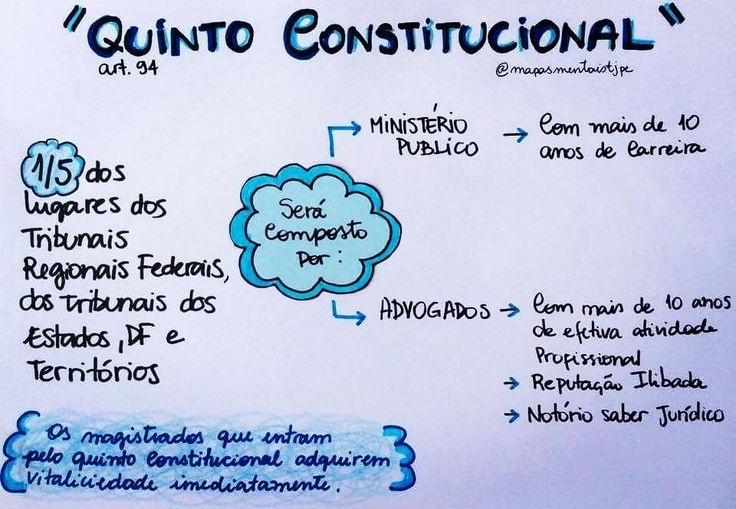 "QUINTO CONSTITUCIONAL"
art. 94
@mapasmentaistjpe
1/5 dos
lugares dos
Tribunais
Regionais Federais,
dos tribunais dos
Estados, DF e
Territórios
Será
Composto
por:
MINISTÉRIO
PUBLICO
Com mais de 10
anos de Carreira
ADVOGADOS
Com mais de 10 anos
de efetiva atividade
Profissional
Reputação Ilibada
Notório saber Jurídico
Os magistrados que entram
pelo quinto Constitucional adquirem
Vitaliciedade imediatamente.